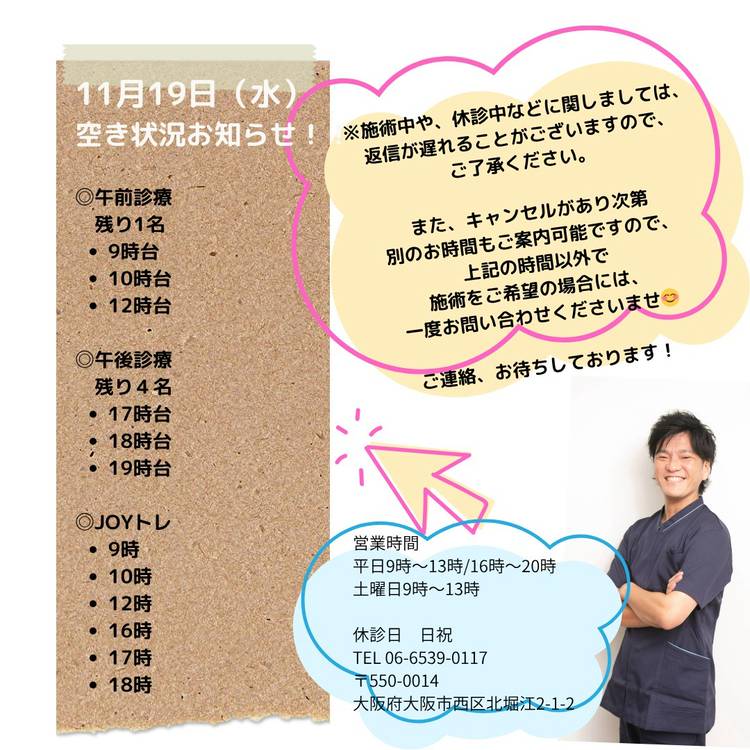 11月19日（水）
空き状況お知らせ！
◎午前診療
残り1名
• 9時台
• 10時台
• 12時台
◎午後診療
残り４名
• 17時台
• 18時台
• 19時台
◎JOYトレ
• 9時
• 10時
• 12時
• 16時
• 17時
• 18時
※施術中や、休診中などに関しましては、
返信が遅れることがございますので、
ご了承ください。
また、キャンセルがあり次第
別のお時間もご案内可能ですので、
上記の時間以外で
施術をご希望の場合には、
一度お問い合わせくださいませ😊
ご連絡、お待ちしております！
営業時間
平日9時〜13時/16時〜20時
土曜日9時〜13時
休診日　日祝
TEL 06-6539-0117
〒550-0014
大阪府大阪市西区北堀江2-1-2